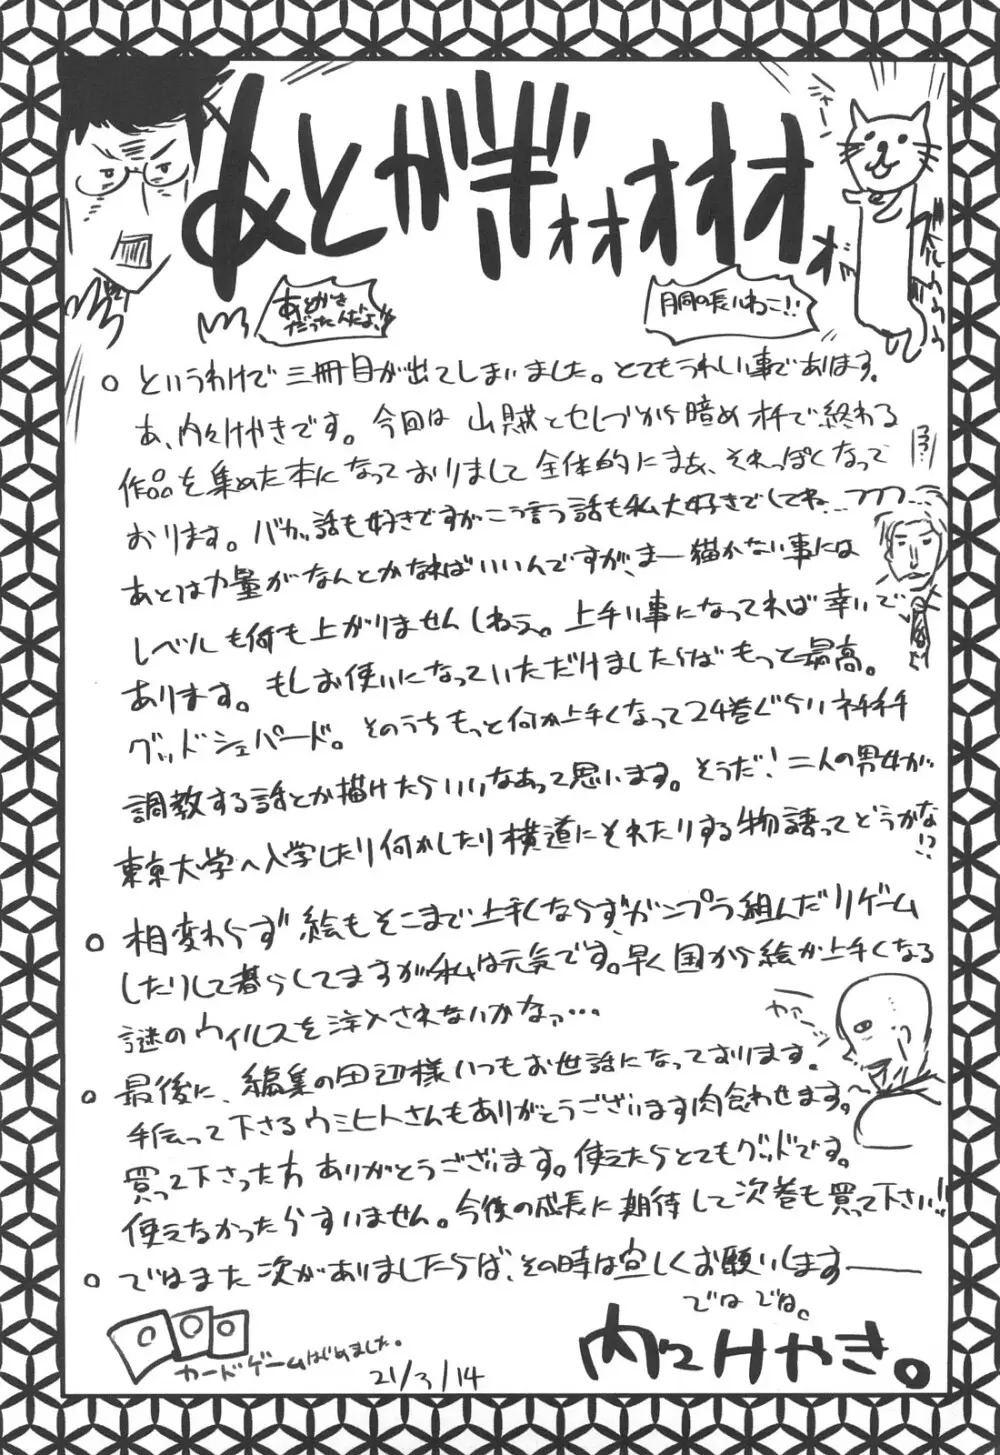 あとがきォオオオオオ
あとがき
だったんだよ!!
胴の長いねこ!!
○ というわけで三冊目が出てしまいました。とてもうれしい事であります。
あ、内々けやきです。今回は山賊とセレブから暗めオチで終わる
作品を集めた本になっておりまして全体的にまぁ、それっぽくなって
おります。バカ話も好きですがこう言う話も私大好きでしてね…フフフ…
あとは力量がなんとかなればいいんですが、まー描かない事には
レベルも何も上がりませんしねぇ。上手い事になってれば幸いで
あります。もしお使いになっていただけましたらばもっと最高。
グッドシェパード。そのうちもっと何か上手くなって24巻ぐらいネチネチ
調教する話とか描けたらいいなあって思います。そうだ!二人の男女が
東京大学へ入学したり何かしたり横道にそれたりする物語ってどうかな!?
○ 相変わらず絵もそこまで上手くならず、ガンプラ組んだりゲーム
したりして暮らしてますが私は元気です。早く国から絵が上手くなる
謎のウィルスを注入されないかなァ…
○ 最後に、編集の田辺様いつもお世話になっております。
手伝って下さるウミヒトさんもありがとうございます肉食わせます。
買って下さった方ありがとうございます。使えたらとてもグッドです。
使えなかったらすいません。今後の成長に期待して次巻も買って下さい!!
○ ではまた次がありましたらば、その時は宜しくお願いします――
ではでは。
カードゲームはじめました。
21/3/14
内々けやき。